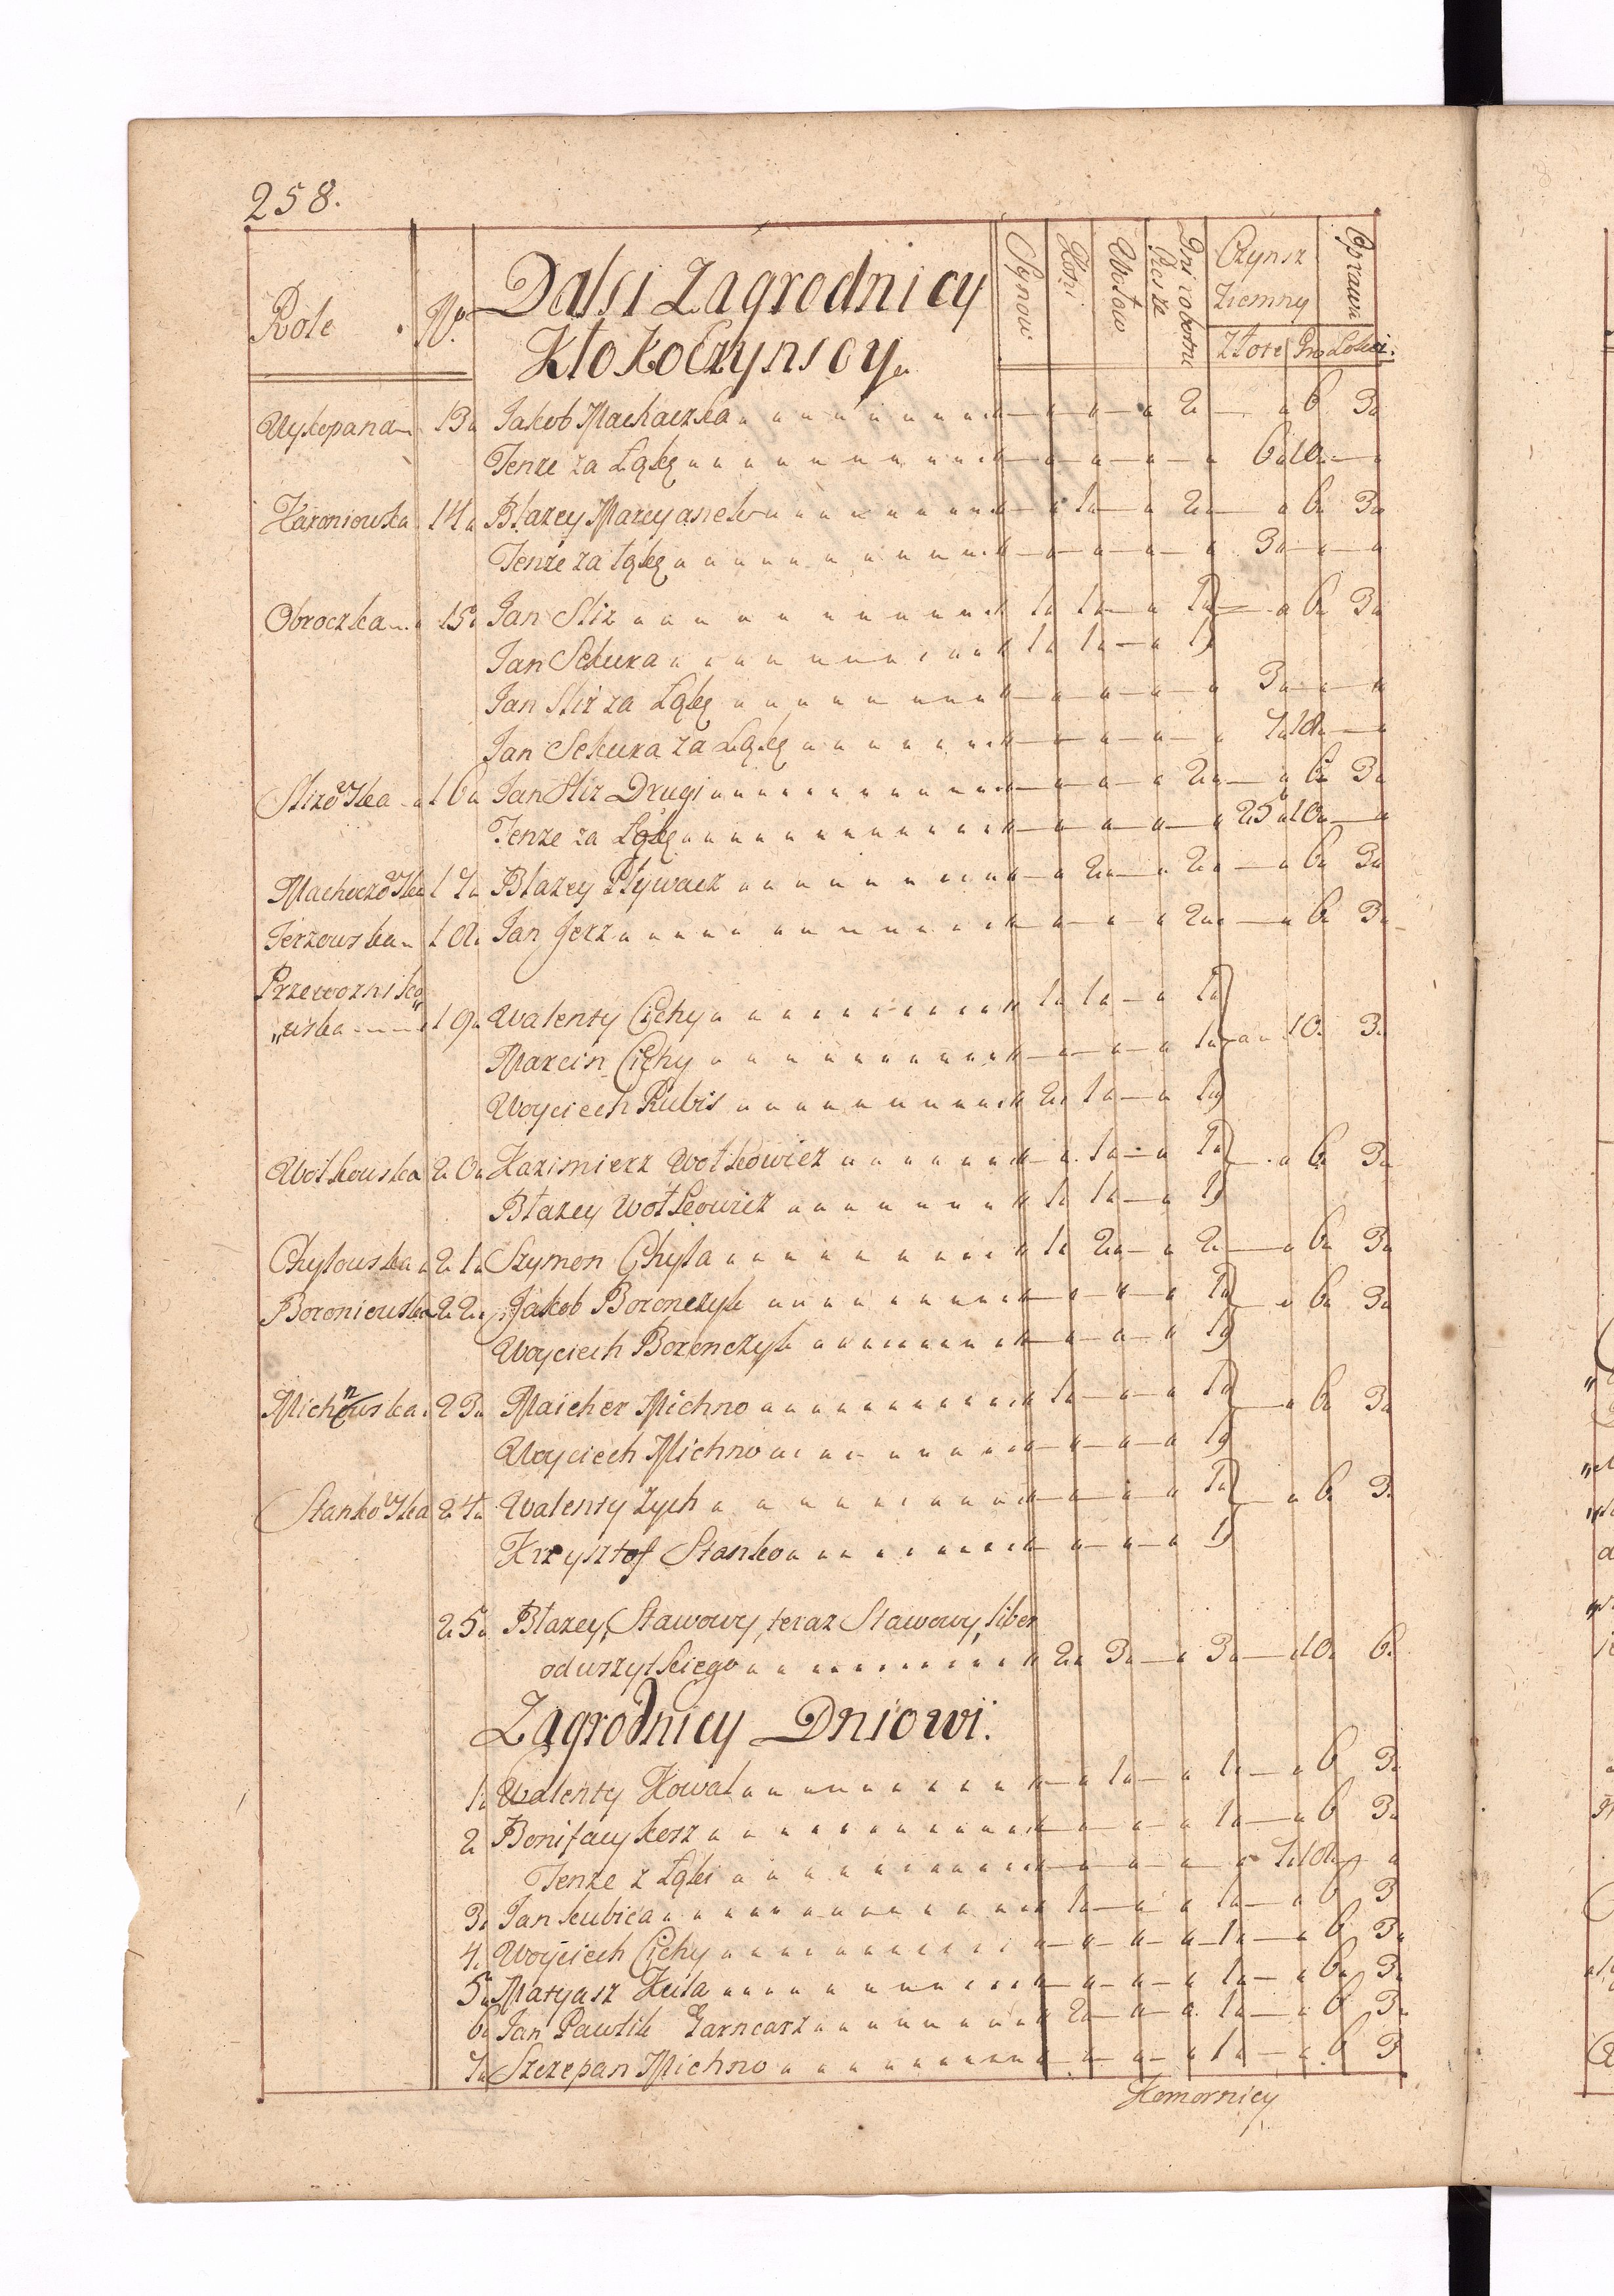 258.
Role Nº Dalsi Zagrodnicy Synow Koni Wołow Dni robotne Piesze Czynsz Ziemny Oprawa
Kłokoczynscy Złote Gro Łokci.
Wykopana 13 Jakob Machaczka 2 — 6 3
Tenze za Łąkę 6 10 —
14 Błazey Marcyanek — — 1 — 2 — 6 3
Tenze za łąkę 3 — —
Obroczka 15 Jan Sliz 1 1 — 1 } — 6 3
Jan Sekura 1 1 — 1
Jan Sliz za Łąkę 3 — —
Jan Sekura za Łąkę 7 10 —
Slizowska 16 Jan Sliz Drugi 2 — 6 3
Tenze za Łąkę 25 10 —
17 Błazey Pływacz — 2 — 2 — 6 3
Jerzowska 18 Jan Jerz 2 — 6 3
Przewoznik„
„owska 19 Walenty Cichy 1 1 — 1
Marcin Cichy — — — 1 } — 10 3
Woyciech Kubis 2 1 — 1
Wołkowska 20 Kazimierz Wołkowicz — 1 — 1 } — 6 3
Błazey Wołkowicz 1 1 — 1
Chyłowska 21 Szymon Chyła 1 2 — 2 — 6 3
Boroniowska 22 Jakob Boronczyk — — — 1 } — 6 3
Woyciech Boronczyk — — — 1
Michnowska 23 Maicher Michno 1 — — 1 } — 6 3
Woyciech Michno — — — 1
Stankowska 24 Walenty Zych — — — 1 } — 6 3
Krzysztof Stanko — — — 1
25 Błazey Stawowy, teraz Stawowy, liber
od wszytkiego 2 3 — 3 — 10 6
Zagrodnicy Dniowi.
1 Walenty Kowal — 1 — 1 — 6 3
2 Bonifacy kosz — — — 1 — 6 3
Tenze z Łąki 7 10
3 Jan kubica 1 — — 1 — 6 3
4 Woyciech Cichy — — — 1 — 6 3
5 Matyasz Kuta — — — 1 — 6 3
6 Jan Pawlik Garncarz 2 — — 1 — 6 3
7 Szczepan Michno — — — 1 — 6 3
Komornicy